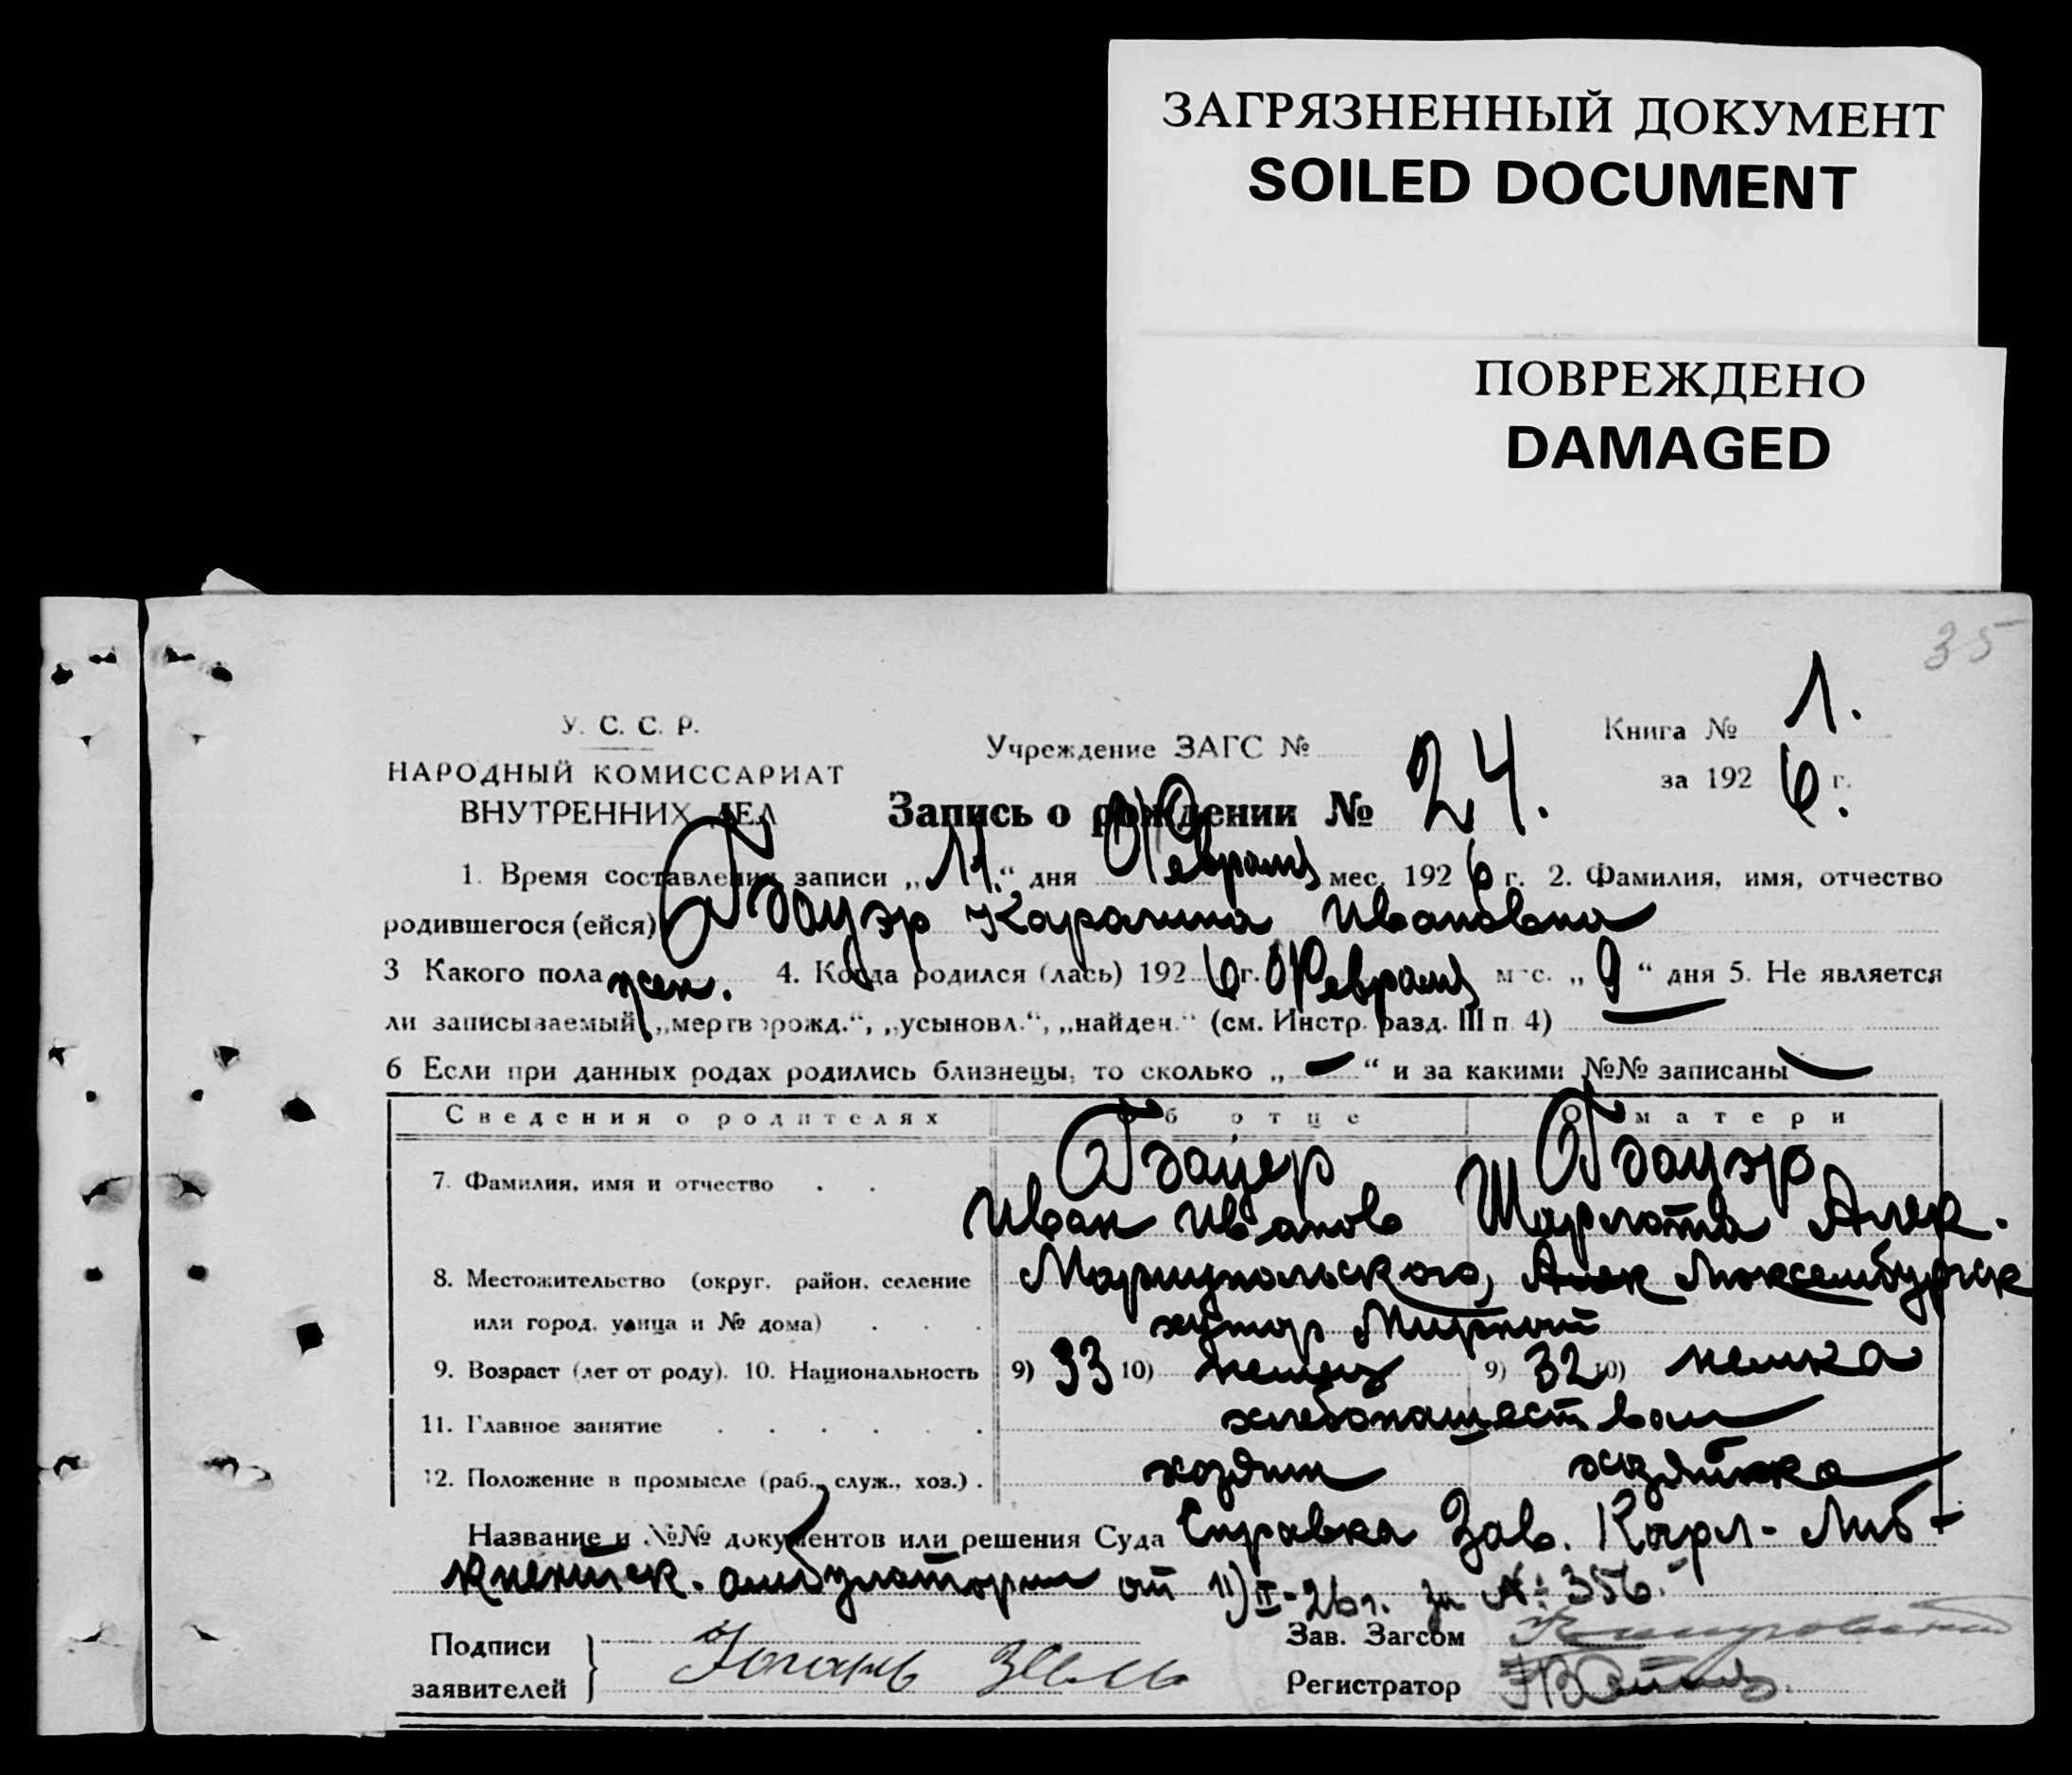 ЗАГРЯЗНЕННЫЙ ДОКУМЕНТ
SOILED DOCUMENT
ПОВРЕЖДЕНО
DAMAGED
35
У. С. С. Р.
НАРОДНЫЙ КОМИССАРИАТ
ВНУТРЕННИХ ДЕЛ
Учреждение ЗАГС №
Книга № 1.
за 1926 г.
Запись о рождении № 24.
1. Время составления записи „11.“ дня Февраля мес. 1926 г. 2. Фамилия, имя, отчество
родившегося (ейся) Гбауэр Каралина Ивановна
3 Какого пола жен. 4. Когда родился (лась) 1926 г. Февраля мес. „9“ дня 5. Не является
ли записываемый „мертворожд.“, „усыновл.“, „найден.“ (см. Инстр. разд. III п. 4) —
6 Если при данных родах родились близнецы, то сколько „—“ и за какими №№ записаны —
Сведения о родителях Об отце О матери
7. Фамилия, имя и отчество . . Гбауер Гбауэр
Иван Иванов Шарлота Алек.
8. Местожительство (округ, район, селение Мариупольского, Люксембургск
или город, улица и № дома) . . . хутор Мирный
9. Возраст (лет от роду). 10. Национальность 9) 33 10) немец 9) 32 10) немка
11. Главное занятие . . . . . . хлебопашеством
12. Положение в промысле (раб., служ., хоз.) . хозяин хозяйка
Название и №№ документов или решения Суда Справка Зав. Карл-Либ-
кнехтск. амбулатории от 11/II-26 г. за №: 356.
Подписи
заявителей
Зав. Загсом
Регистратор